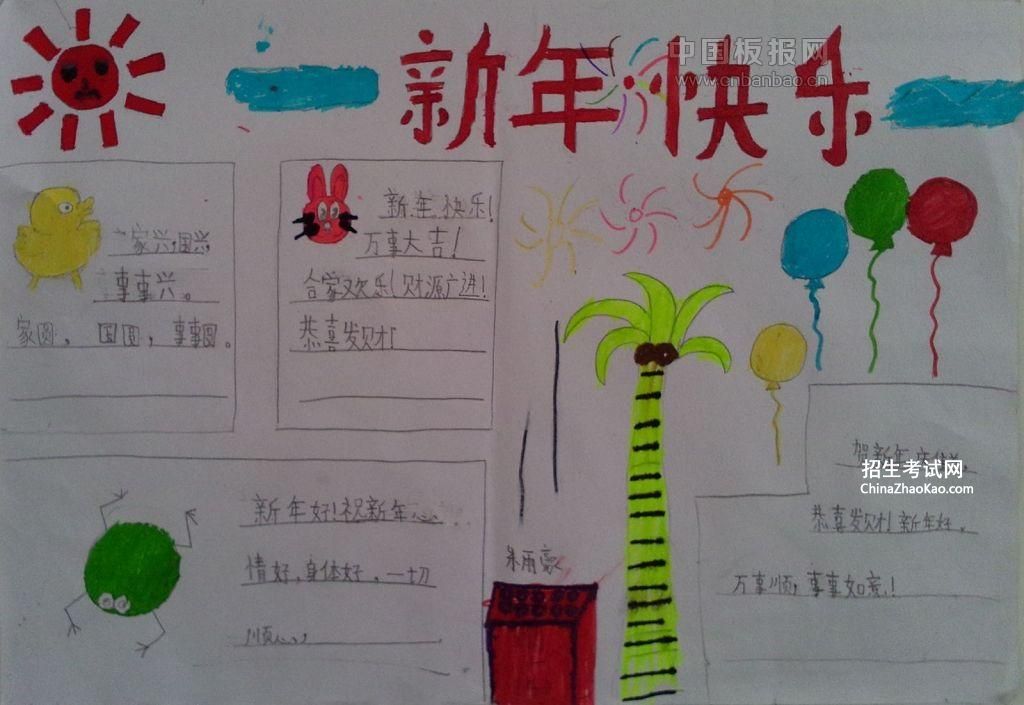 新年快乐
中国板报网
www.cnbanbao.cn
家兴,国兴,
事事兴。
家圆,国圆,事事圆。
新年快乐!
万事大吉!
合家欢乐!财源广进!
恭喜发财!
新年好!祝新年心
情好,身体好,一切
顺心
朱雨豪
贺新年
招生考试网
ChinaZhaoKao.com
恭喜发财!新年好。
万事顺,事事如意!